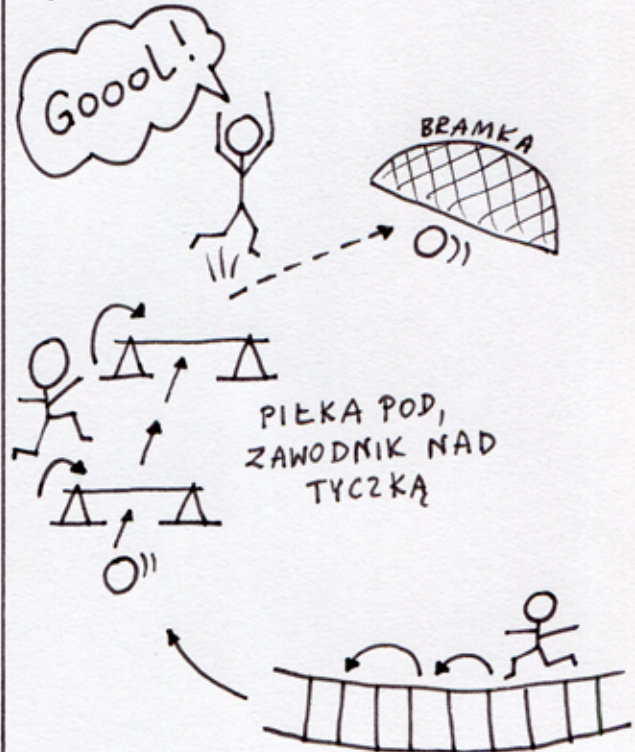 Goool!
BRAMKA
PIŁKA POD,
ZAWODNIK NAD
TYCZKĄ